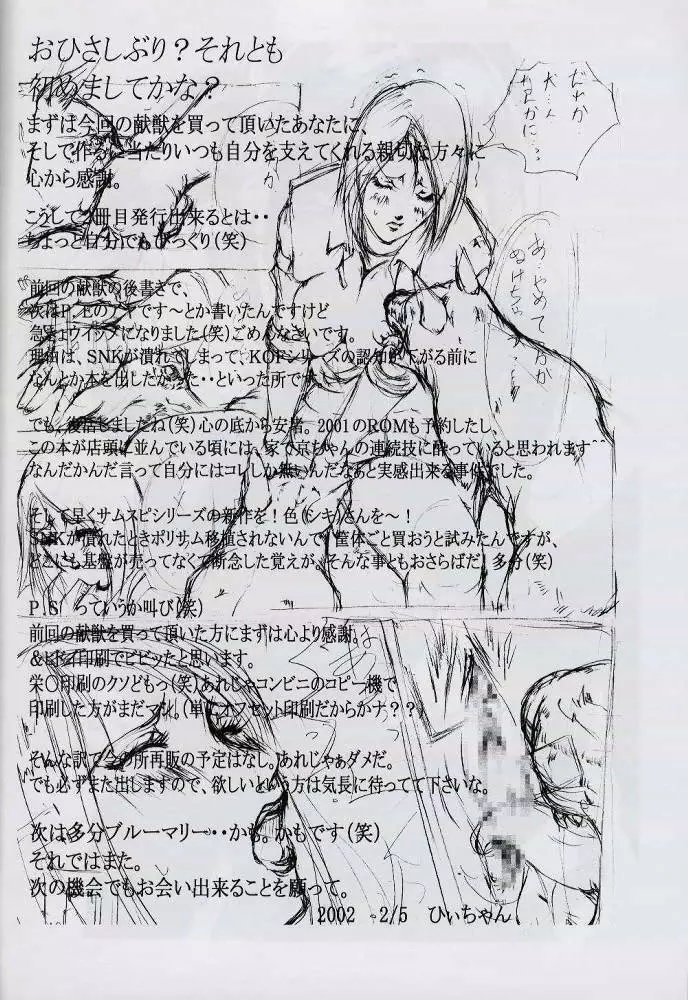 おひさしぶり？それとも
初めましてかな？
まずは今回の献獣を買って頂いたあなたに、
そして作るに当たりいつも自分を支えてくれる親切な方々に
心から感謝。
こうして2冊目発行出来るとは・・
ちょっと自分でもびっくり(笑)
前回の献獣の後書きで、
次はP.Eのアヤです～とか書いたんですけど
急きょウイップになりました(笑)ごめんなさいです。
理由は、SNKが潰れてしまって、KOFシリーズの認知が下がる前に
なんとか本を出したかった・・といった所です。
でも、復活しましたね(笑)心の底から安堵。2001のROMも予約したし、
この本が店頭に並んでいる頃には、家で京ちゃんの連続技に酔っていると思われます^^
なんだかんだ言って自分にはコレしか無いんだなあと実感出来る事件でした。
そして早くサムスピシリーズの新作を！色(シキ)さんを～！
SNKが潰れたときポリサム移植されないんで、筐体ごと買おうと試みたんですが、
どこにも基盤が売ってなくて断念した覚えが。そんな事ともおさらばだ！多分(笑)
P.S っていうか叫び(笑)
前回の献獣を買って頂いた方にまずは心より感謝。
＆ヒドイ印刷でビビッたと思います。
栄〇印刷のクソどもっ(笑)あれじゃコンビニのコピー機で
印刷した方がまだマシ。(単にオフセット印刷だからかナ？？
そんな訳で今の所再販の予定はなし。あれじゃぁダメだ。
でも必ずまた出しますので、欲しいという方は気長に待ってて下さいな。
次は多分ブルーマリー・・かも。かもです(笑)
それではまた。
次の機会でもお会い出来ることを願って。
2002 2/5 ひぃちゃん